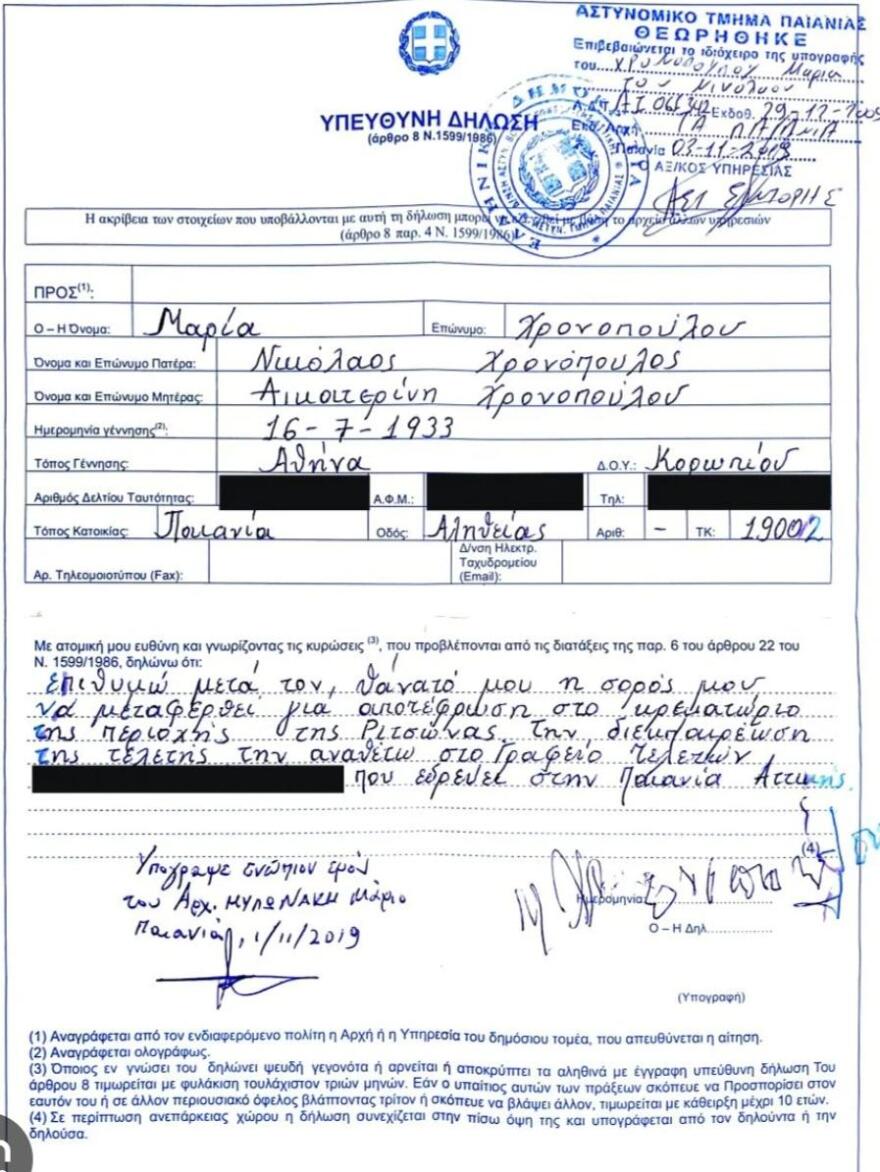 ΑΣΤΥΝΟΜΙΚΟ ΤΜΗΜΑ ΠΑΙΑΝΙΑΣ
ΘΕΩΡΗΘΗΚΕ
Επιβεβαιώνεται το ιδιόχειρο της υπογραφής
του Μαρία
του Νικολάου
Α.Δ.Τ. Εκδοθ.
Εκδ. Αρχή
Παιανία 03-11-2019
Ο ΑΞ/ΚΟΣ ΥΠΗΡΕΣΙΑΣ
ΥΠΕΥΘΥΝΗ ΔΗΛΩΣΗ
(άρθρο 8 Ν.1599/1986)
Η ακρίβεια των στοιχείων που υποβάλλονται με αυτή τη δήλωση μπορεί να ελεγχθεί με βάση το αρχείο άλλων υπηρεσιών
(άρθρο 8 παρ. 4 Ν. 1599/1986)
ΠΡΟΣ(1):
Ο – Η Όνομα: Μαρία Επώνυμο: Χρονοπούλου
Όνομα και Επώνυμο Πατέρα: Νικόλαος Χρονόπουλος
Όνομα και Επώνυμο Μητέρας: Αικατερίνη Χρονοπούλου
Ημερομηνία γέννησης(2): 16-7-1933
Τόπος Γέννησης: Αθήνα Δ.Ο.Υ.: Κορωπίου
Αριθμός Δελτίου Ταυτότητας: Α.Φ.Μ.: Τηλ:
Τόπος Κατοικίας: Παιανία Οδός: Αληθείας Αριθ: - ΤΚ: 19002
Αρ. Τηλεομοιοτύπου (Fax): Δ/νση Ηλεκτρ.
Ταχυδρομείου
(Email):
Με ατομική μου ευθύνη και γνωρίζοντας τις κυρώσεις (3), που προβλέπονται από τις διατάξεις της παρ. 6 του άρθρου 22 του
Ν. 1599/1986, δηλώνω ότι:
Επιθυμώ μετά τον θάνατό μου η σορός μου
να μεταφερθεί για αποτέφρωση στο κρεματώριο
της περιοχής της Ριτσώνας. Την διεκπαιρέωση
της τελετής την αναθέτω στο Γραφείο Τελετών
που εδρεύει στην Παιανία Αττικής.
(4)
Υπόγραψε ενώπιον εμού
του Αρχ. ΜΥΛΩΝΑΚΗ Μάριο
Παιανία, 1/11/2019
Ημερομηνία:
Ο – Η Δηλ.
(Υπογραφή)
(1) Αναγράφεται από τον ενδιαφερόμενο πολίτη η Αρχή ή η Υπηρεσία του δημόσιου τομέα, που απευθύνεται η αίτηση.
(2) Αναγράφεται ολογράφως.
(3) Όποιος εν γνώσει του δηλώνει ψευδή γεγονότα ή αρνείται ή αποκρύπτει τα αληθινά με έγγραφη υπεύθυνη δήλωση Του
άρθρου 8 τιμωρείται με φυλάκιση τουλάχιστον τριών μηνών. Εάν ο υπαίτιος αυτών των πράξεων σκόπευε να Προσπορίσει στον
εαυτόν του ή σε άλλον περιουσιακό όφελος βλάπτοντας τρίτον ή σκόπευε να βλάψει άλλον, τιμωρείται με κάθειρξη μέχρι 10 ετών.
(4) Σε περίπτωση ανεπάρκειας χώρου η δήλωση συνεχίζεται στην πίσω όψη της και υπογράφεται από τον δηλούντα ή την
δηλούσα.